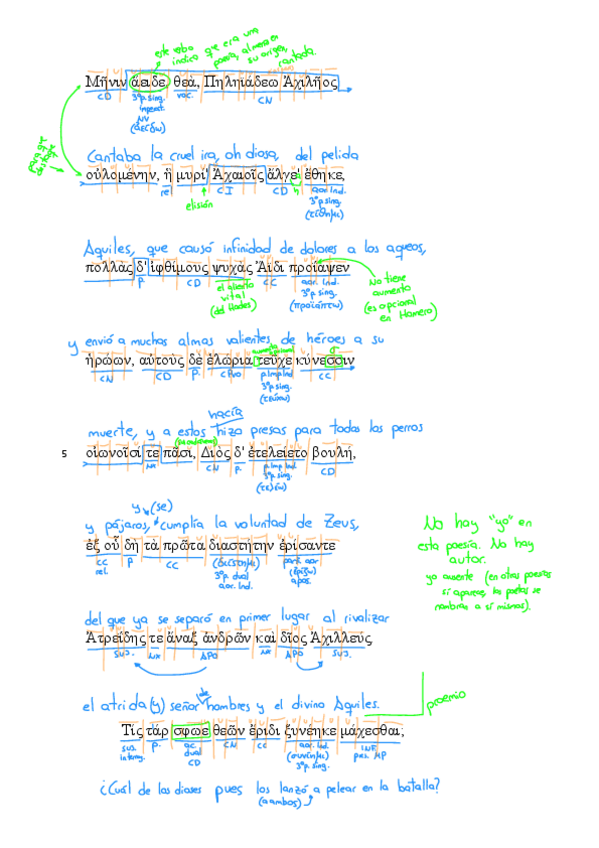 este verbo indica que era una poesía, al menos en su origen cantada.
Μῆνιν ἄειδε, θεά, Πηληϊάδεω Ἀχιλῆος,
CD 3ª p. sing. voc. CN
imperat.
NV
(ἀείδω)
Cantaba la cruel ira, oh diosa, del pelida
οὐλομένην, ἣ μυρί' Ἀχαιοῖς ἄλγε' ἔθηκε,
rel CI CD aor. Ind.
elisión 3ª p. sing.
(τίθημι)
Aquiles, que causó infinidad de dolores a los aqueos,
πολλὰς δ' ἰφθίμους ψυχὰς Ἄϊδι προΐαψεν
P. CD CC aor. Ind.
el aliento vital 3ª p. sing.
(del Hades) (προϊάπτω)
No tiene aumento (es opcional en Homero)
y envió a muchas almas valientes de héroes a su
ἡρώων, αὐτοὺς δὲ ἑλώρια τεῦχε κύνεσσιν
CN CD P. CPvo p. Imp Ind CC
3ª p. sing.
(τεύχω)
hacía
muerte, y a estos hizo presas para todos los perros
5 οἰωνοῖσί τε πᾶσι, Διὸς δ' ἐτελείετο βουλή,
NX CN P. p. Imp. Ind. CD
3ª p. sing.
(τελέω)
y (se)
y pájaros, cumplía la voluntad de Zeus,
ἐξ οὗ δὴ τὰ πρῶτα διαστήτην ἐρίσαντε
CC P CC (διΐστημι) part. aor
rel. 3ª p. dual (ἐρίζω)
aor. Ind. apos.
No hay "yo" en esta poesía. No hay autor.
yo ausente (en otras poesías sí aparece, los poetas se nombran a sí mismos).
del que ya se separó en primer lugar al rivalizar
Ἀτρεΐδης τε ἄναξ ἀνδρῶν καὶ δῖος Ἀχιλλεύς.
SUJ. NX APO NX APO SUJ.
el atrida (y) señor de hombres y el divino Aquiles.
proemio
Τίς τάρ σφωε θεῶν ἔριδι ξυνέηκε μάχεσθαι;
sus. P. ac. CN CC aor. Ind. INF
interrog. dual (συνίημι) pres. MP
CD 3ª p. sing.
¿Cuál de los dioses pues los lanzó a pelear en la batalla?
(a ambos)